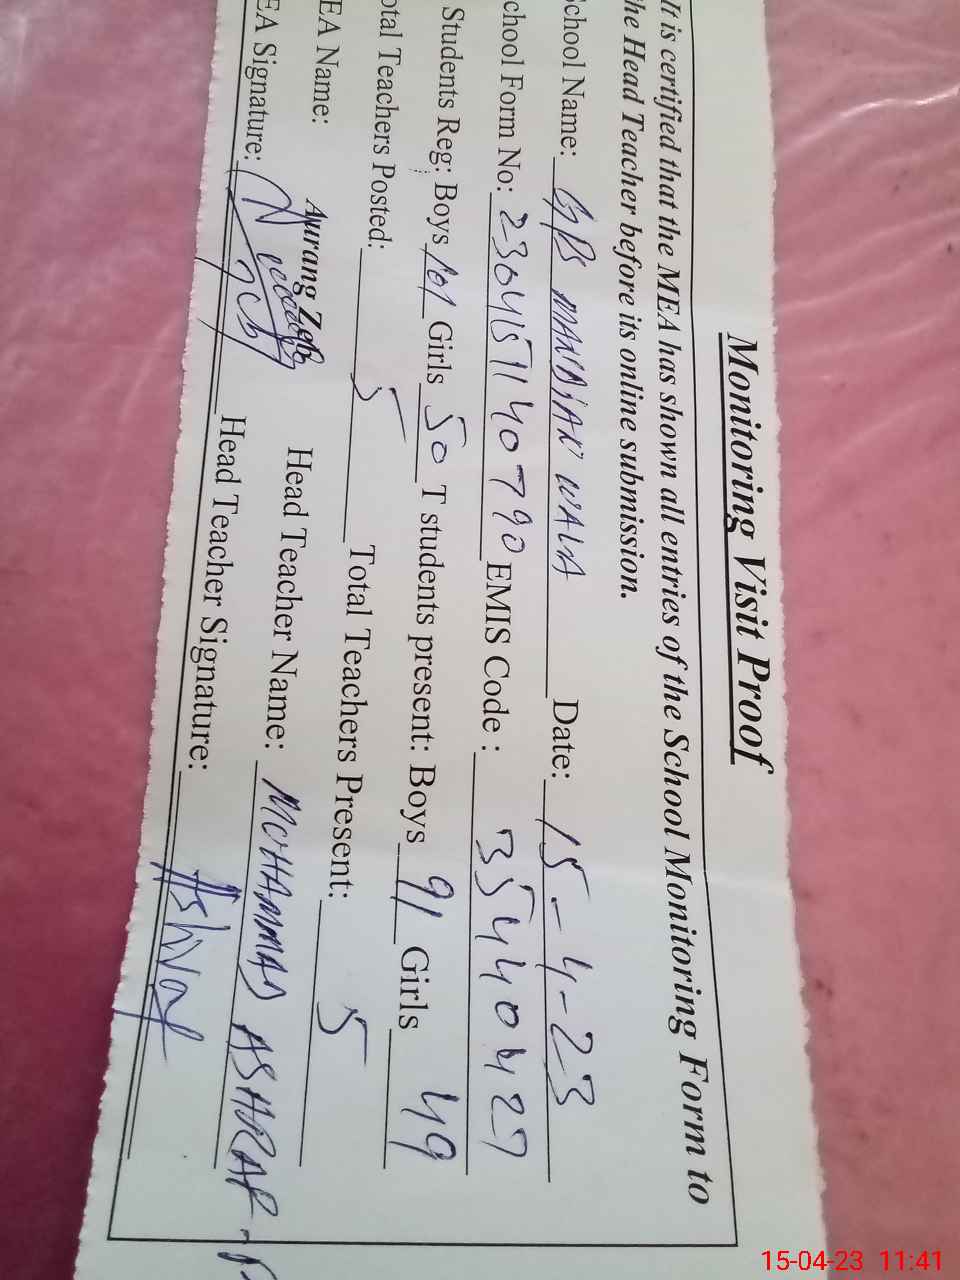 Monitoring Visit Proof
It is certified that the MEA has shown all entries of the School Monitoring Form to
he Head Teacher before its online submission.
chool Name: GPS MANDIAR WALA Date: 15-4-23
chool Form No: 23041571140790 EMIS Code : 35440427
Students Reg: Boys 101 Girls 50 T students present: Boys 91 Girls 49
otal Teachers Posted: 5 Total Teachers Present: 5
EA Name: Aurang Zeb Head Teacher Name: MOHAMMAD ASHRAF
EA Signature: Head Teacher Signature: Ashraf
15-04-23 11:41